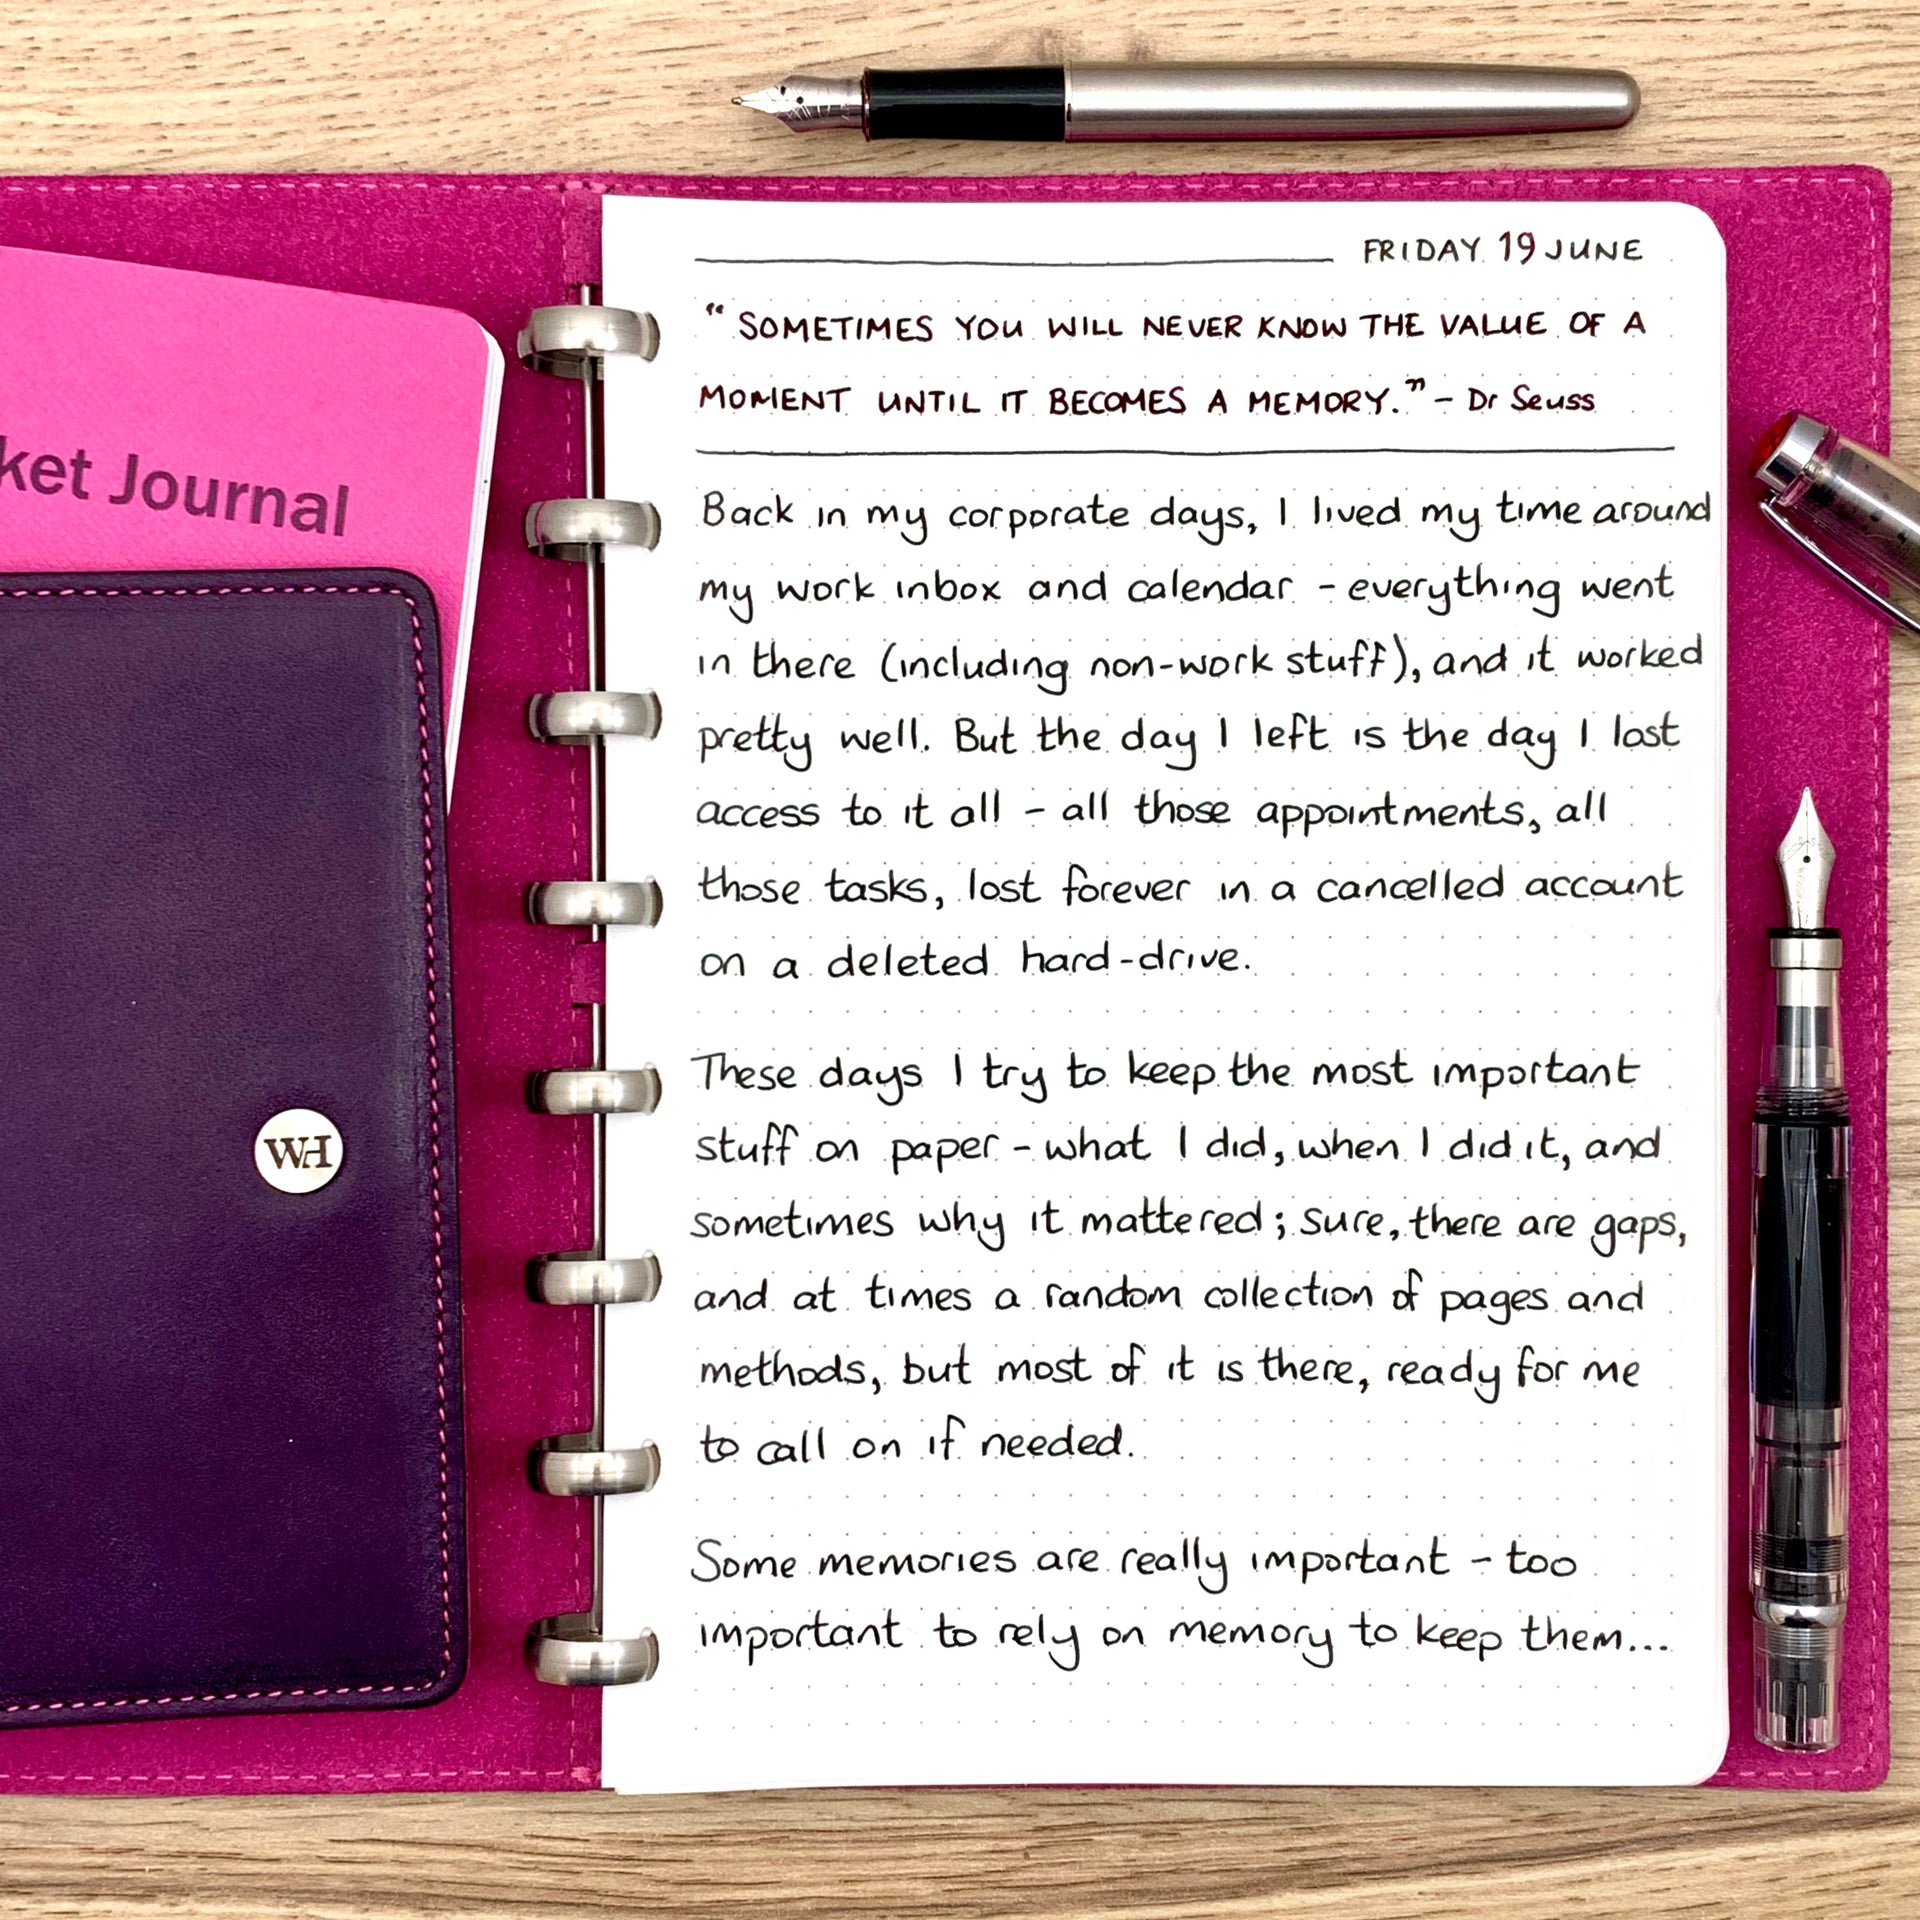 FRIDAY 19 JUNE
"SOMETIMES YOU WILL NEVER KNOW THE VALUE OF A
MOMENT UNTIL IT BECOMES A MEMORY." - Dr Seuss
Back in my corporate days, I lived my time around
my work inbox and calendar - everything went
in there (including non-work stuff), and it worked
pretty well. But the day I left is the day I lost
access to it all - all those appointments, all
those tasks, lost forever in a cancelled account
on a deleted hard-drive.
These days I try to keep the most important
stuff on paper - what I did, when I did it, and
sometimes why it mattered; sure, there are gaps,
and at times a random collection of pages and
methods, but most of it is there, ready for me
to call on if needed.
Some memories are really important - too
important to rely on memory to keep them...
ket Journal
WH